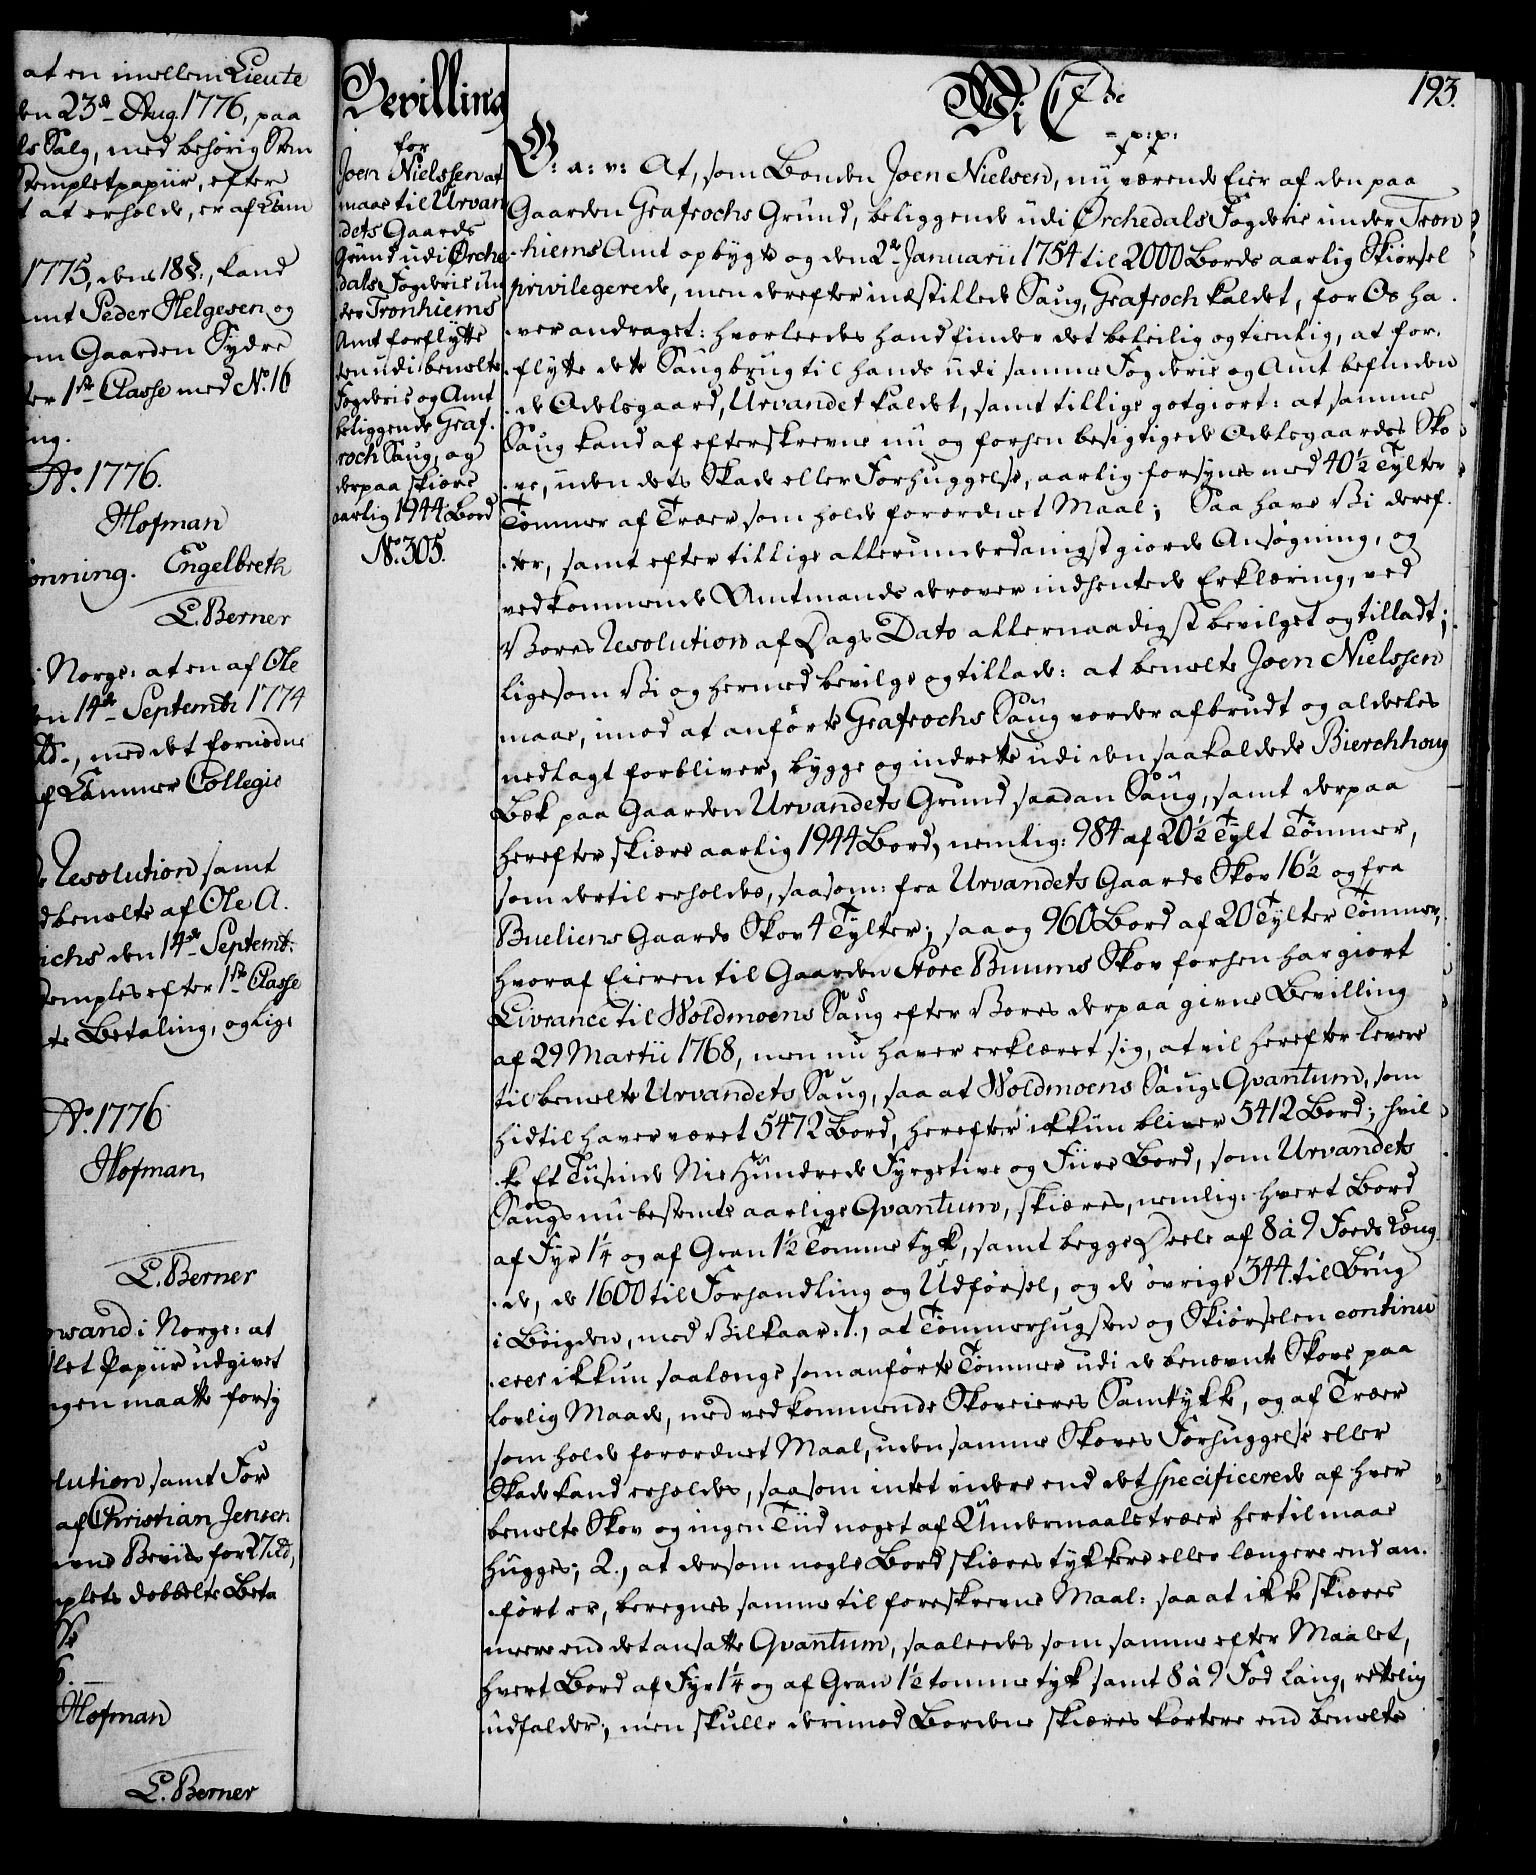 at en imellem Lieute
den 23de Aug. 1776, paa
ls Salg, med behørig Stem
Stempletpapiir, efter
t at erholde, er af Cam
1775, dens 18 §., kand
Amt Peder Helgesen og
om Gaarden Sydre
ter 1ste Classe med No. 16
ing.
Ao. 1776.
Hofman
Engelbreth
L. Berner
Norge: at en af Ole
den 14de Septembr. 1774
med det fornødne
af Cammer Collegie
Resolution samt
dbemelte af Ole A.
richs den 14de Septemb:
stemples efter 1ste Classe
te Betaling, og lige
Ao. 1776
Hofman,
L. Berner
nsand i Norge: at
plet Papiir udgivet
ngen maatte forsy
olution samt For
af Christian Jensen
vne Beviis for
mplets dobbelte Beta
Hofman
L. Berner
Bevilling
for
Joen Nielssen at
maae til Urvan
dets Gaards
Grund udi Ørche
dals Fogderie un
der Tronhiems
Amt forflytte
den udi bemelte
Fogderie og Amt
beliggende Graf-
roch Saug, og
derpaa skiære
aarlig 1944 Bord
No. 305.
193.
Wi C 7de
p: p:
G: a: v: At, som Bonden Joen Nielsen, nu værende Eier af den paa
Gaarden Grafrochs Grund, beliggende udi Ørchedals Fogderie under Tron
hiems Amt opbygte og den 2de Januarii 1754 til 2000 Bords aarlig Skiørsel
privilegerede, men derefter indstillede Saug, Grafroch kaldet, for Os ha
ver andraget: hvorledes hand finder det beleilig og tienlig, at for-
flytte dette Saugbrug til hands udi samme Fogderie og Amt befinden
de Odelsgaard, Urvandet kaldet, samt tillige gotgiort: at samme
Saug kand af efterskrevne nu og forhen besigtigede Odelsgaardes Sko
ve, uden dets Skade eller Forhuggelse, aarlig forsynes med 40½ Tylter
Tømmer af Træer som holde forordnet Maal; Saa have Vi deref-
ter, samt efter tillige allerunderdanigst giorde Ansøgning, og
vedkommende Amtmands derover indhentede Erklæring, ved
Vores Resolution af Dags Dato allernaadigst bevilget og tilladt;
ligesom Vi og hermed bevilge og tillade: at bemelte Joen Nielssen
maae, imod at anførte Grafrochs Saug vorder afbrudt og aldeeles
nedlagt forbliver, bygge og indrette udi den saakaldede Bierchhoug
Bek paa Gaarden Urvandets Grund saadan Saug, samt derpaa
herefter skiære aarlig 1944 Bord, nemlig: 984 af 20½ Tylt Tømmer,
som dertil erholdes, saasom: fra Urvandets Gaards Skov 16½ og fra
Bueliens Gaards Skov 4 Tylter; saa og 960 Bord af 20 Tylter Tømmer,
hvoraf Eieren til Gaarden Store Buums Skov forhen har giort
Livrance til Woldmoens Saug efter Vores derpaa givne Bevilling
af 29 Martii 1768, men nu haver erklæret sig, at vil herefter levere
til bemelte Urvandets Saug, saa at Woldmoens Saugs Qvantum, som
hidtil haver været 5472 Bord, herefter ikkun bliver 5412 Bord; hvil
ke Et Tusinde Nie Hundrede Fyrgetive og Fiire Bord, som Urvandets
Saugs nu bestemte aarlige Qvantum, skiæres, nemlig: hvert Bord
af Fyr 1¼ og af Gran 1½ Tomme tyk, samt begge Deele af 8 à 9 Foeds Læng
de, de 1600 til Forhandling og Udførsel, og de øvrige 344 til Brug
i Bøigden, med Vilkaar: 1., at Tømmerhugsten og Skiørselen continu
erer ikkun saalænge som anførte Tømmer udi de benævnte Skove paa
lovlig Maade, med vedkommende Skoveieres Samtykke, og af Træer
som holde forordnet Maal, uden samme Skoves Forhuggelse eller
Skade kand erholdes, saasom intet videre end det specificerede af hver
bemelte Skov og ingen Tiid noget af Undermaalstræer hertil maae
hugges; 2., at dersom nogle Bord skiæres tykkere eller længere end an-
ført er, beregnes samme til foreskrevne Maal: saa at ikke skiæres
meere end det ansatte Qvantum, saaleedes som samme efter Maalet,
hvert Bord af Fyr 1¼ og af Gran 1½ tomme tyk samt 8 à 9 Fod lang, rettelig
udfalder; men skulle derimod Bordene skiæres kortere end bemelte